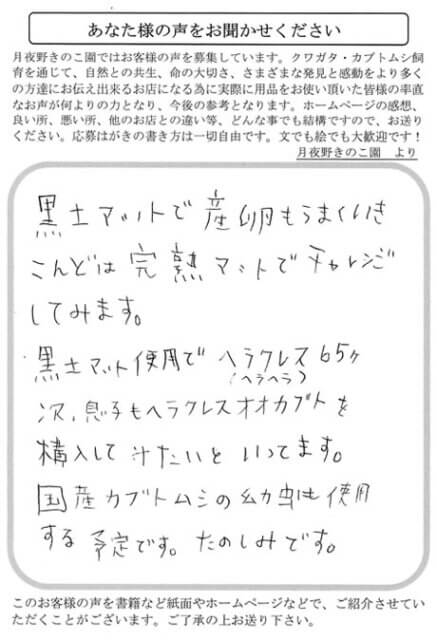 あなた様の声をお聞かせください
月夜野きのこ園ではお客様の声を募集しています。クワガタ・カブトムシ飼
育を通じて、自然との共生、命の大切さ、さまざまな発見と感動をより多く
の方達にお伝え出来るお店になる為に実際に用品をお使い頂いた皆様の率直
なお声が何よりの力となり、今後の参考となります。ホームページの感想、
良い所、悪い所、他のお店との違い等、どんな事でも結構ですので、お送り
ください。応募はがきの書き方は一切自由です。文でも絵でも大歓迎です！
月夜野きのこ園 より
黒土マットで産卵もうまくいき
こんどは完熟マットでチャレンジ
してみます。
黒土マット使用でヘラクレス65ヶ
(ヘラヘラ)
次、息子もヘラクレスオオカブトを
購入して汁たいといってます。
国産カブトムシの幼虫も使用
する予定です。たのしみです。
このお客様の声を書籍など紙面やホームページなどで、ご紹介させてい
ただくことがございます。ご了承の上お送り下さい。